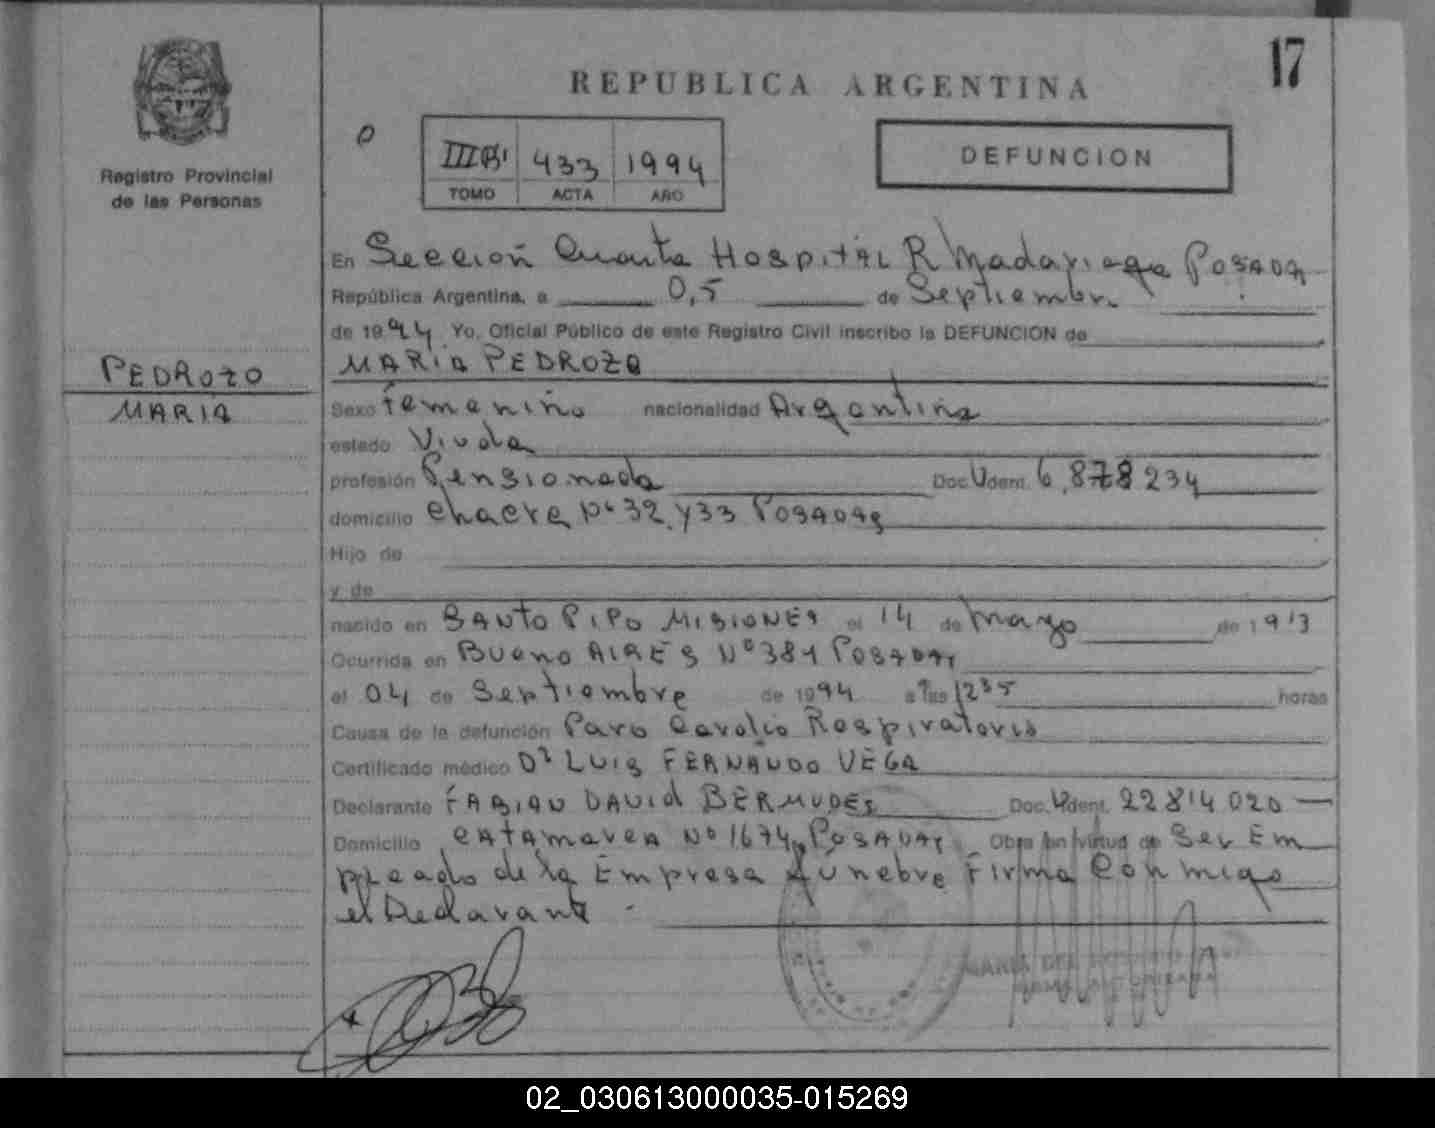 17
REPUBLICA ARGENTINA
Registro Provincial
de las Personas
433 1994
TOMO ACTA AÑO
DEFUNCION
En Sección Cuarta Hospital R Madariaga Posadas
República Argentina, a 0,5 de Septiembre
de 1994 Yo, Oficial Público de este Registro Civil inscribo la DEFUNCION de
PEDROZO
MARIA
MARIA PEDROZO
Sexo femenino nacionalidad Argentina
estado Viuda
profesión Pensionada Doc. Ident. 6.878234
domicilio chacra Nº 32 y 33 POSADAS
Hijo de
y de
nacido en SANTO PIPO MISIONES el 14 de Marzo de 1913
Ocurrida en BUENO AIRES Nº 381 POSADAS
el 04 de Septiembre de 1994 a las 1235 horas
Causa de la defunción Paro Cardio Respiratorio
Certificado médico Dr LUIS FERNANDO VEGA
Declarante FABIAN DAVID BERMUDES Doc. Ident. 22814020
Domicilio CATAMARCA Nº 1674 POSADAS Obra en virtud de Ser Em
pleado de la Empresa funebre Firma Conmigo
el Declarante
MARIA DEL
FIRMA AUTORIZADA
02_030613000035-015269